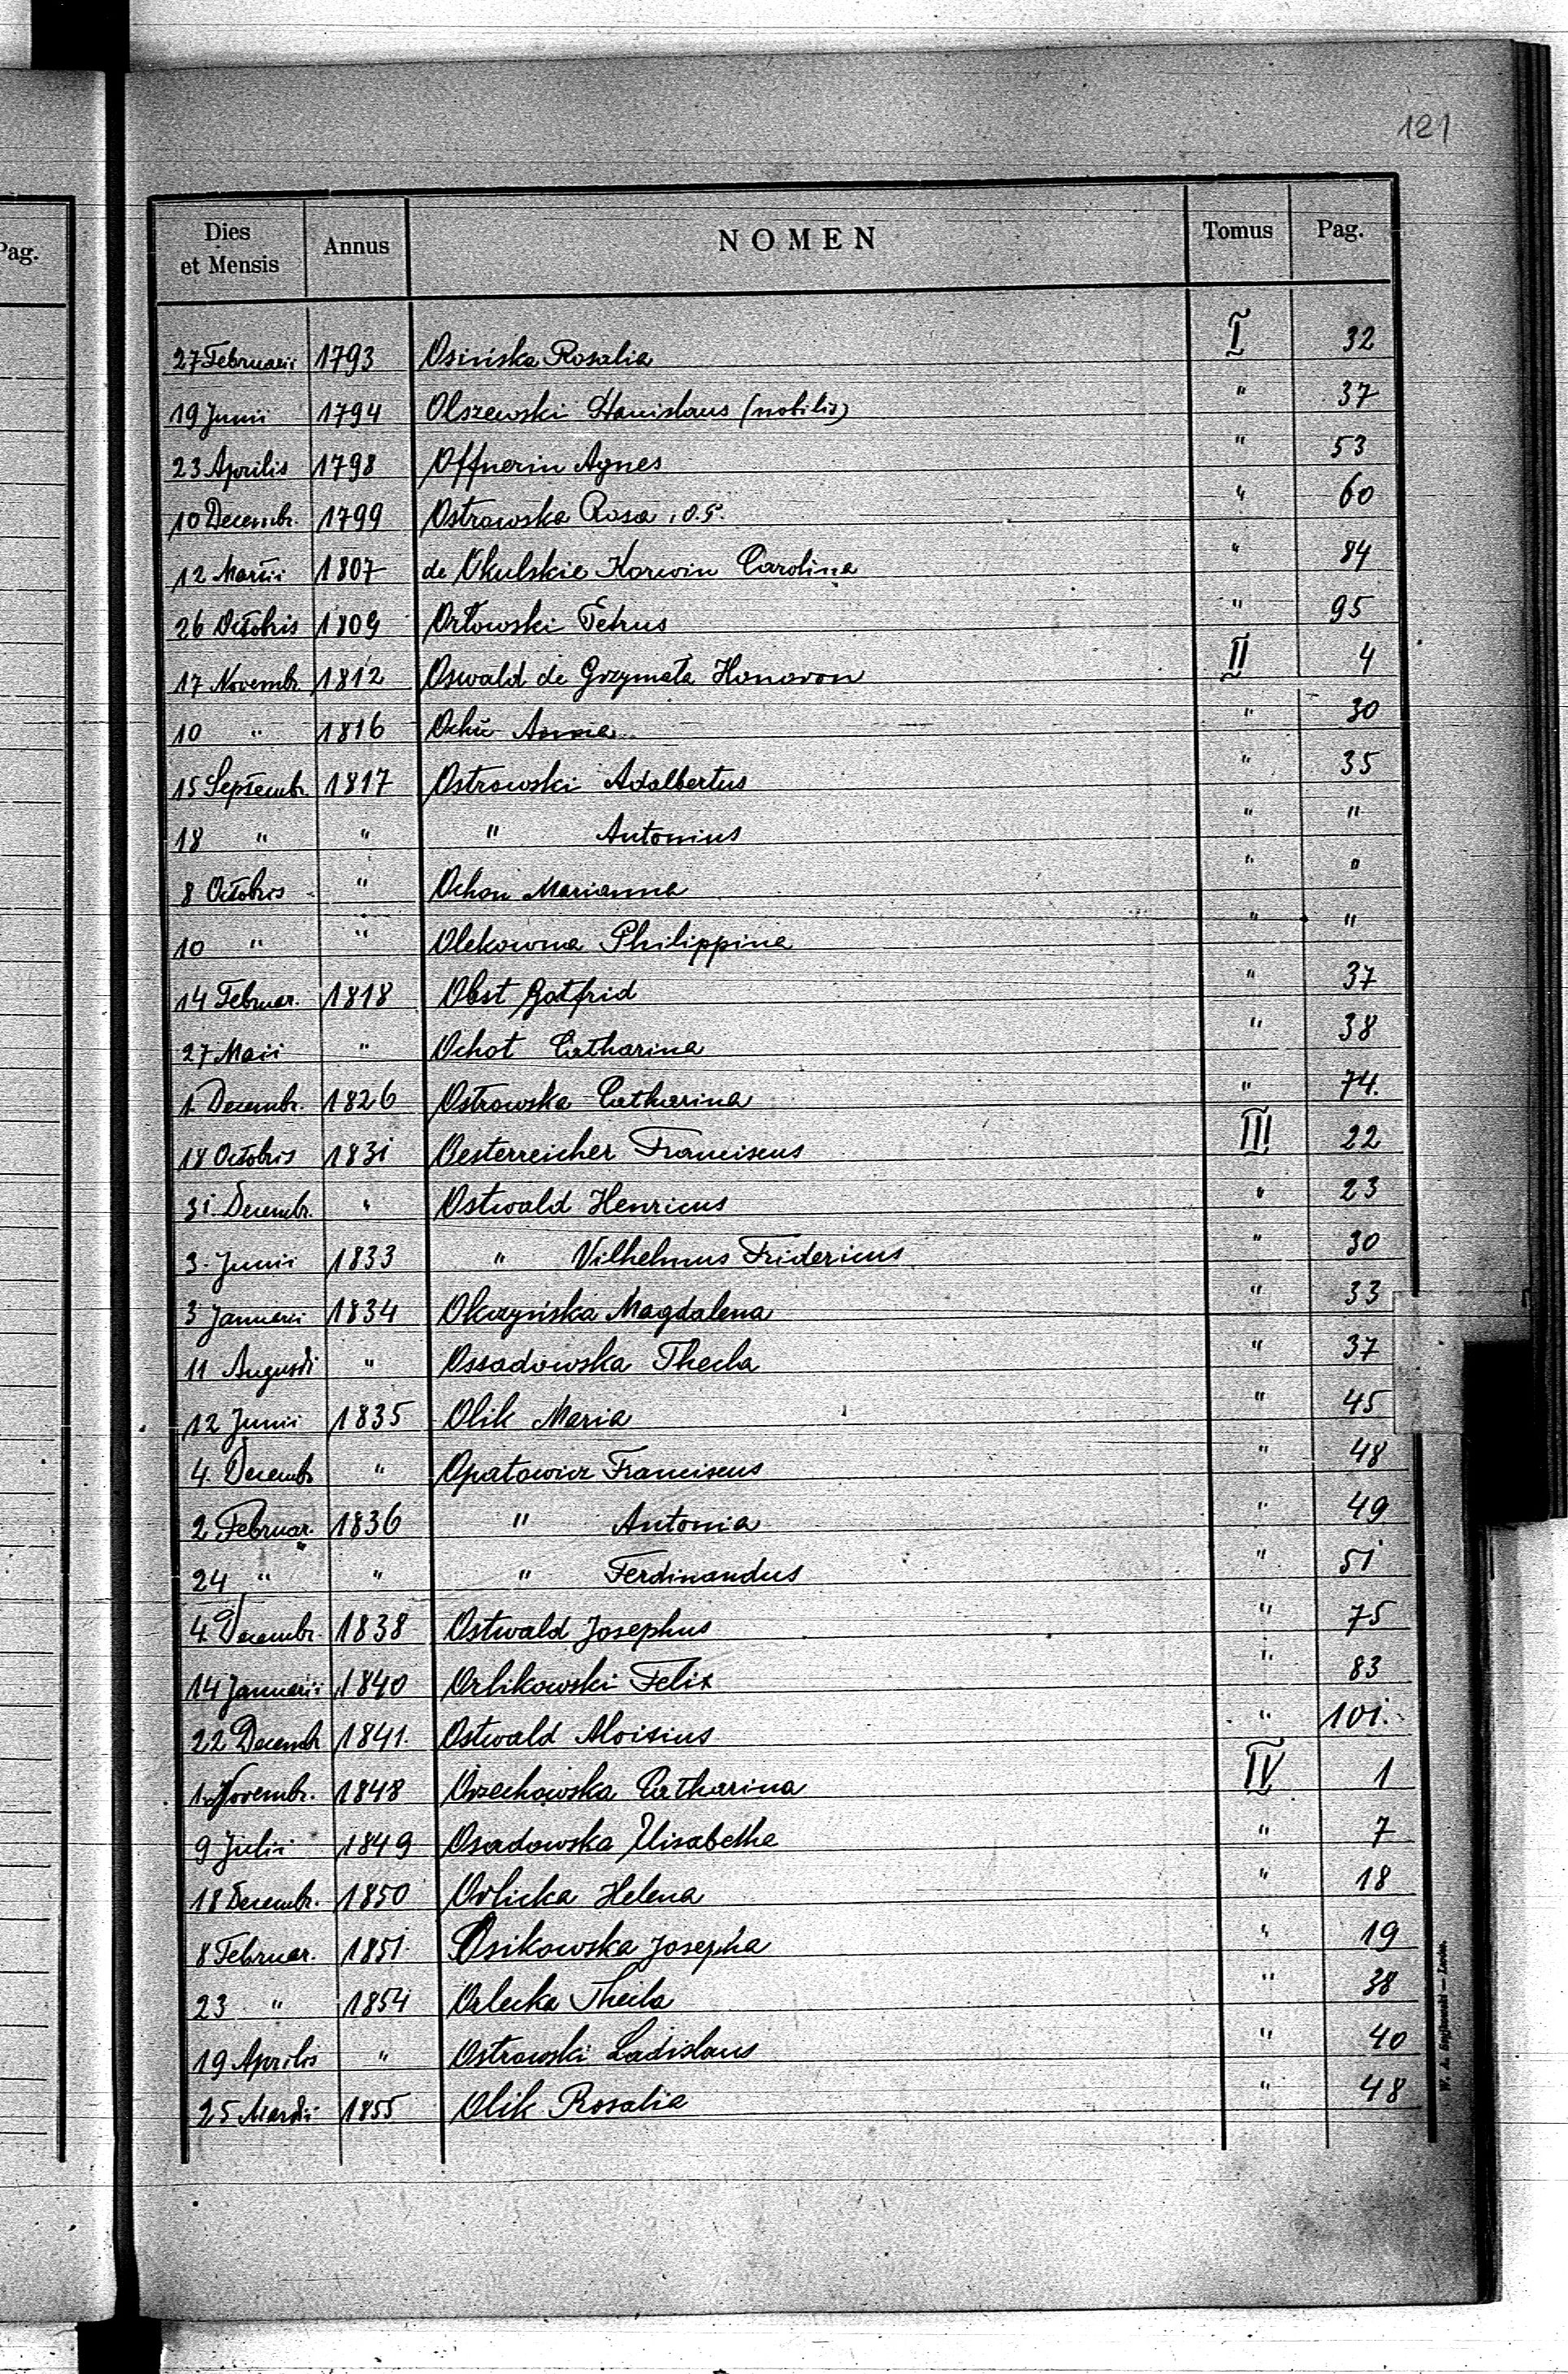 121
Pag.
Dies et Mensis Annus NOMEN Tomus Pag.
27 Februarii 1793 Osińska Rosalia I 32
19 Junii 1794 Olszewski Stanislaus (nobilis) " 37
23 Aprilis 1798 Offnerin Agnes " 53
10 Decembr. 1799 Ostrowska Rosa " 60
12 Martii 1807 de Okulskie Korwin Carolina " 84
26 Octobris 1809 Orłowski Petrus " 95
17 Novembr. 1812 Oswald de Grzymała Honoron II 4
10 " 1816 Anna " 30
15 Septembr. 1817 Ostrowski Adalbertus " 35
18 " " " Antonius " "
8 Octobris " Ochon Marianna " "
10 " " Olekowna Philippina " "
14 Februar. 1818 Obst Gotfrid " 37
27 Maii " Ochot Catharina " 38
1. Decembr. 1826 Ostrowska Catharina " 74.
18 Octobris 1831 Oesterreicher Franciscus III 22
31. Decembr. " Ostwald Henricus " 23
3. Junii 1833 " Vilhelmus Fridericus " 30
3 Januarii 1834 Okrzyńska Magdalena " 33
11 Augusti " Ossadowska Thecla " 37
12 Junii 1835 Olik Maria " 45
4. Decembr " Opatowicz Franciscus " 48
2 Februar. 1836 " Antonia " 49
24 " " " Ferdinandus " 51
4. Decembr. 1838 Ostwald Josephus " 75
14 Januarii 1840 Orlikowski Felix " 83
22 Decembr 1841. Ostwald Aloisius " 101.
1. Novembr. 1848 Orzechowska Catharina IV 1
9 Julii 1849 Osadowska Elisabetha " 7
18 Decembr. 1850 Orlicka Helena " 18
8 Februar. 1851. Osikowska Josepha " 19
23 " 1854 Orlecka Thecla " 38
19 Aprilis " Ostrowski Ladislaus " 40
25 Martii 1855 Olik Rosalia " 48